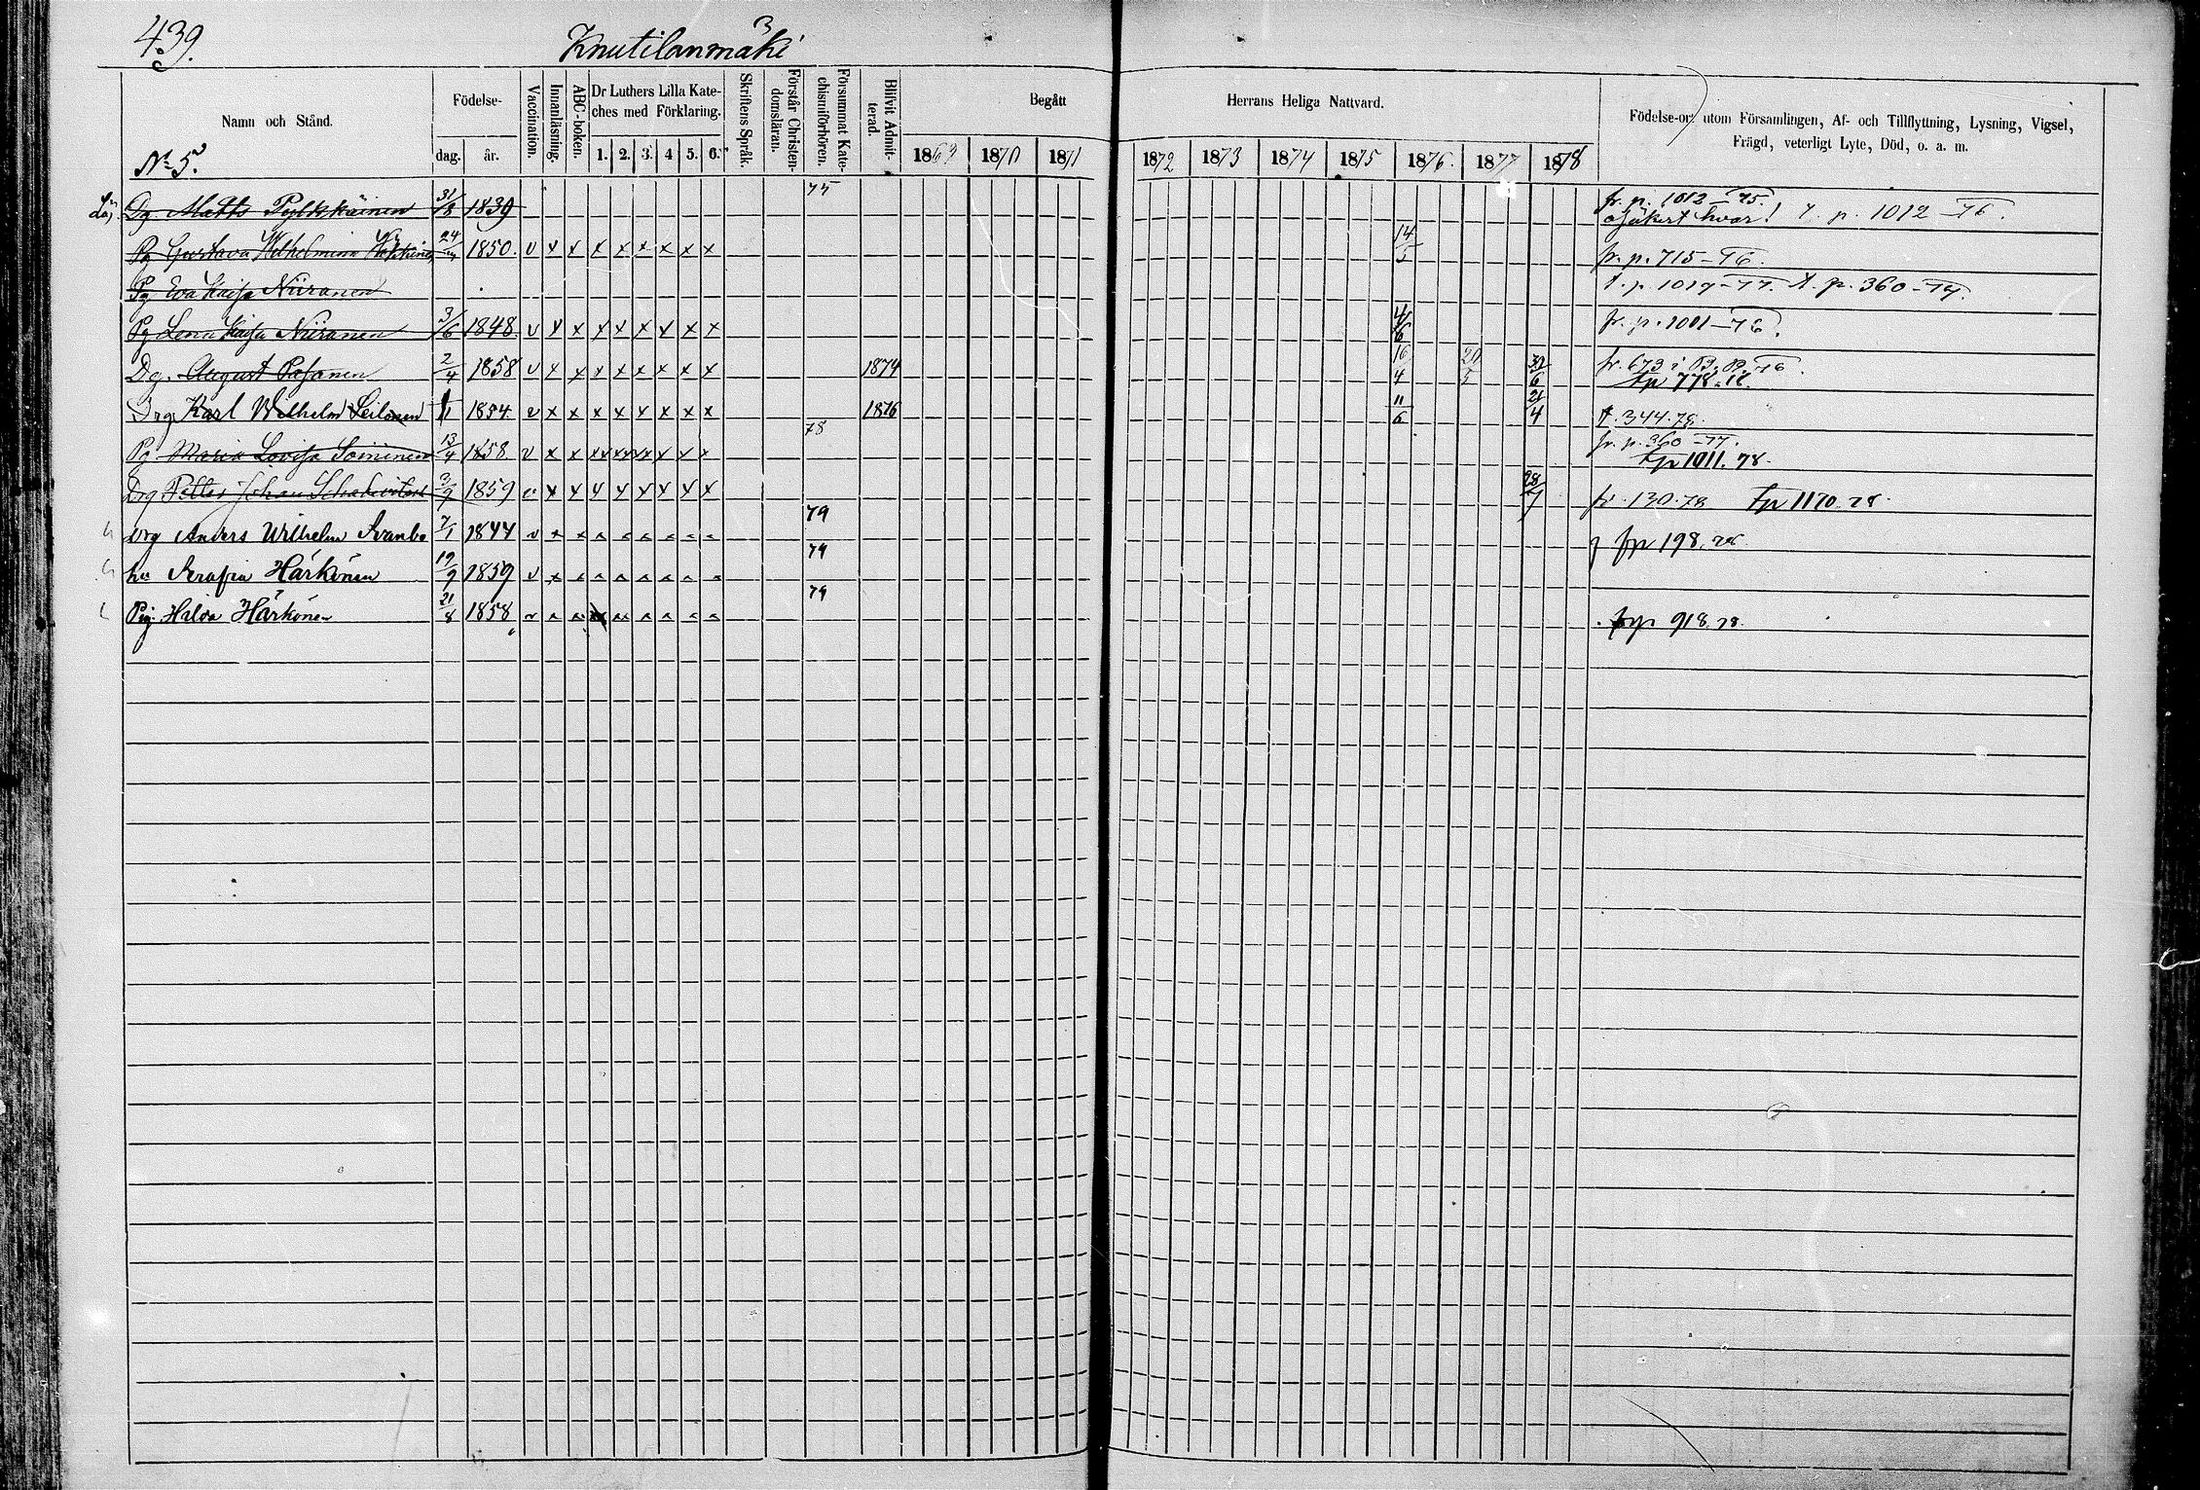 439.
Knutilanmäki 3
Namn och Stånd.
Födelse-
dag. år.
Vaccination.
Innanläsning.
ABC-boken.
Dr Luthers Lilla Kate-
ches med Förklaring.
1. 2. 3. 4. 5. 6.
Skriftens Språk.
Förstår Christen-
domsläran.
Försummat Kate-
chismiförhören.
Blifvit Admit-
terad.
Begått
Herrans Heliga Nattvard.
1869 1870 1871 1872 1873 1874 1875 1876. 1877 1878
Födelse-ort utom Församlingen, Af- och Tillflyttning, Lysning, Vigsel,
Frägd, veterligt Lyte, Död, o. a. m.
No 5.
Dg. Matts Pylkkäinen 31/8 1839 75 fr. p. 1012-75.
osäkert hvar! t. p. 1012-76.
Pg Gustava Wilhelmina 1850. v x x x x x x x x 14/5 fr. p. 715-76.
Pg Eva Kaisa Niiranen t. p. 1019-77. t. p. 360-77.
Pg Lena Kaisa Niiranen 3/6 1848. v x x x x x x x x 4/6 fr. p. 1011-76.
Dg. August Pasanen 2/4 1858 v x x x x x x x x 1874 16/4 20/5 30/6 fr. 673 i B. B. 76.
tp 778.
Drg Karl Wilhelm Leilonen 1/1 1854 v x x x x x x x x 1876 11/6 21/4 t. 344.78.
Pg Maria Lovisa Soininen 13/4 1858 v x x xx xx xx x x x 78 fr. p. 360-77.
tp 1011. 78.
Drg Petter Johan 3/9 1859 v x x x x x x x x 28/7 fr. 130.78 tp 1170.78.
Drg Anders Wilhelm 7/1 1844 79 fp 198.78
Serafia Härkönen 19/9 1859 79
Pig. Hilda Härkönen 21/8 1858 79 frp 918.78.